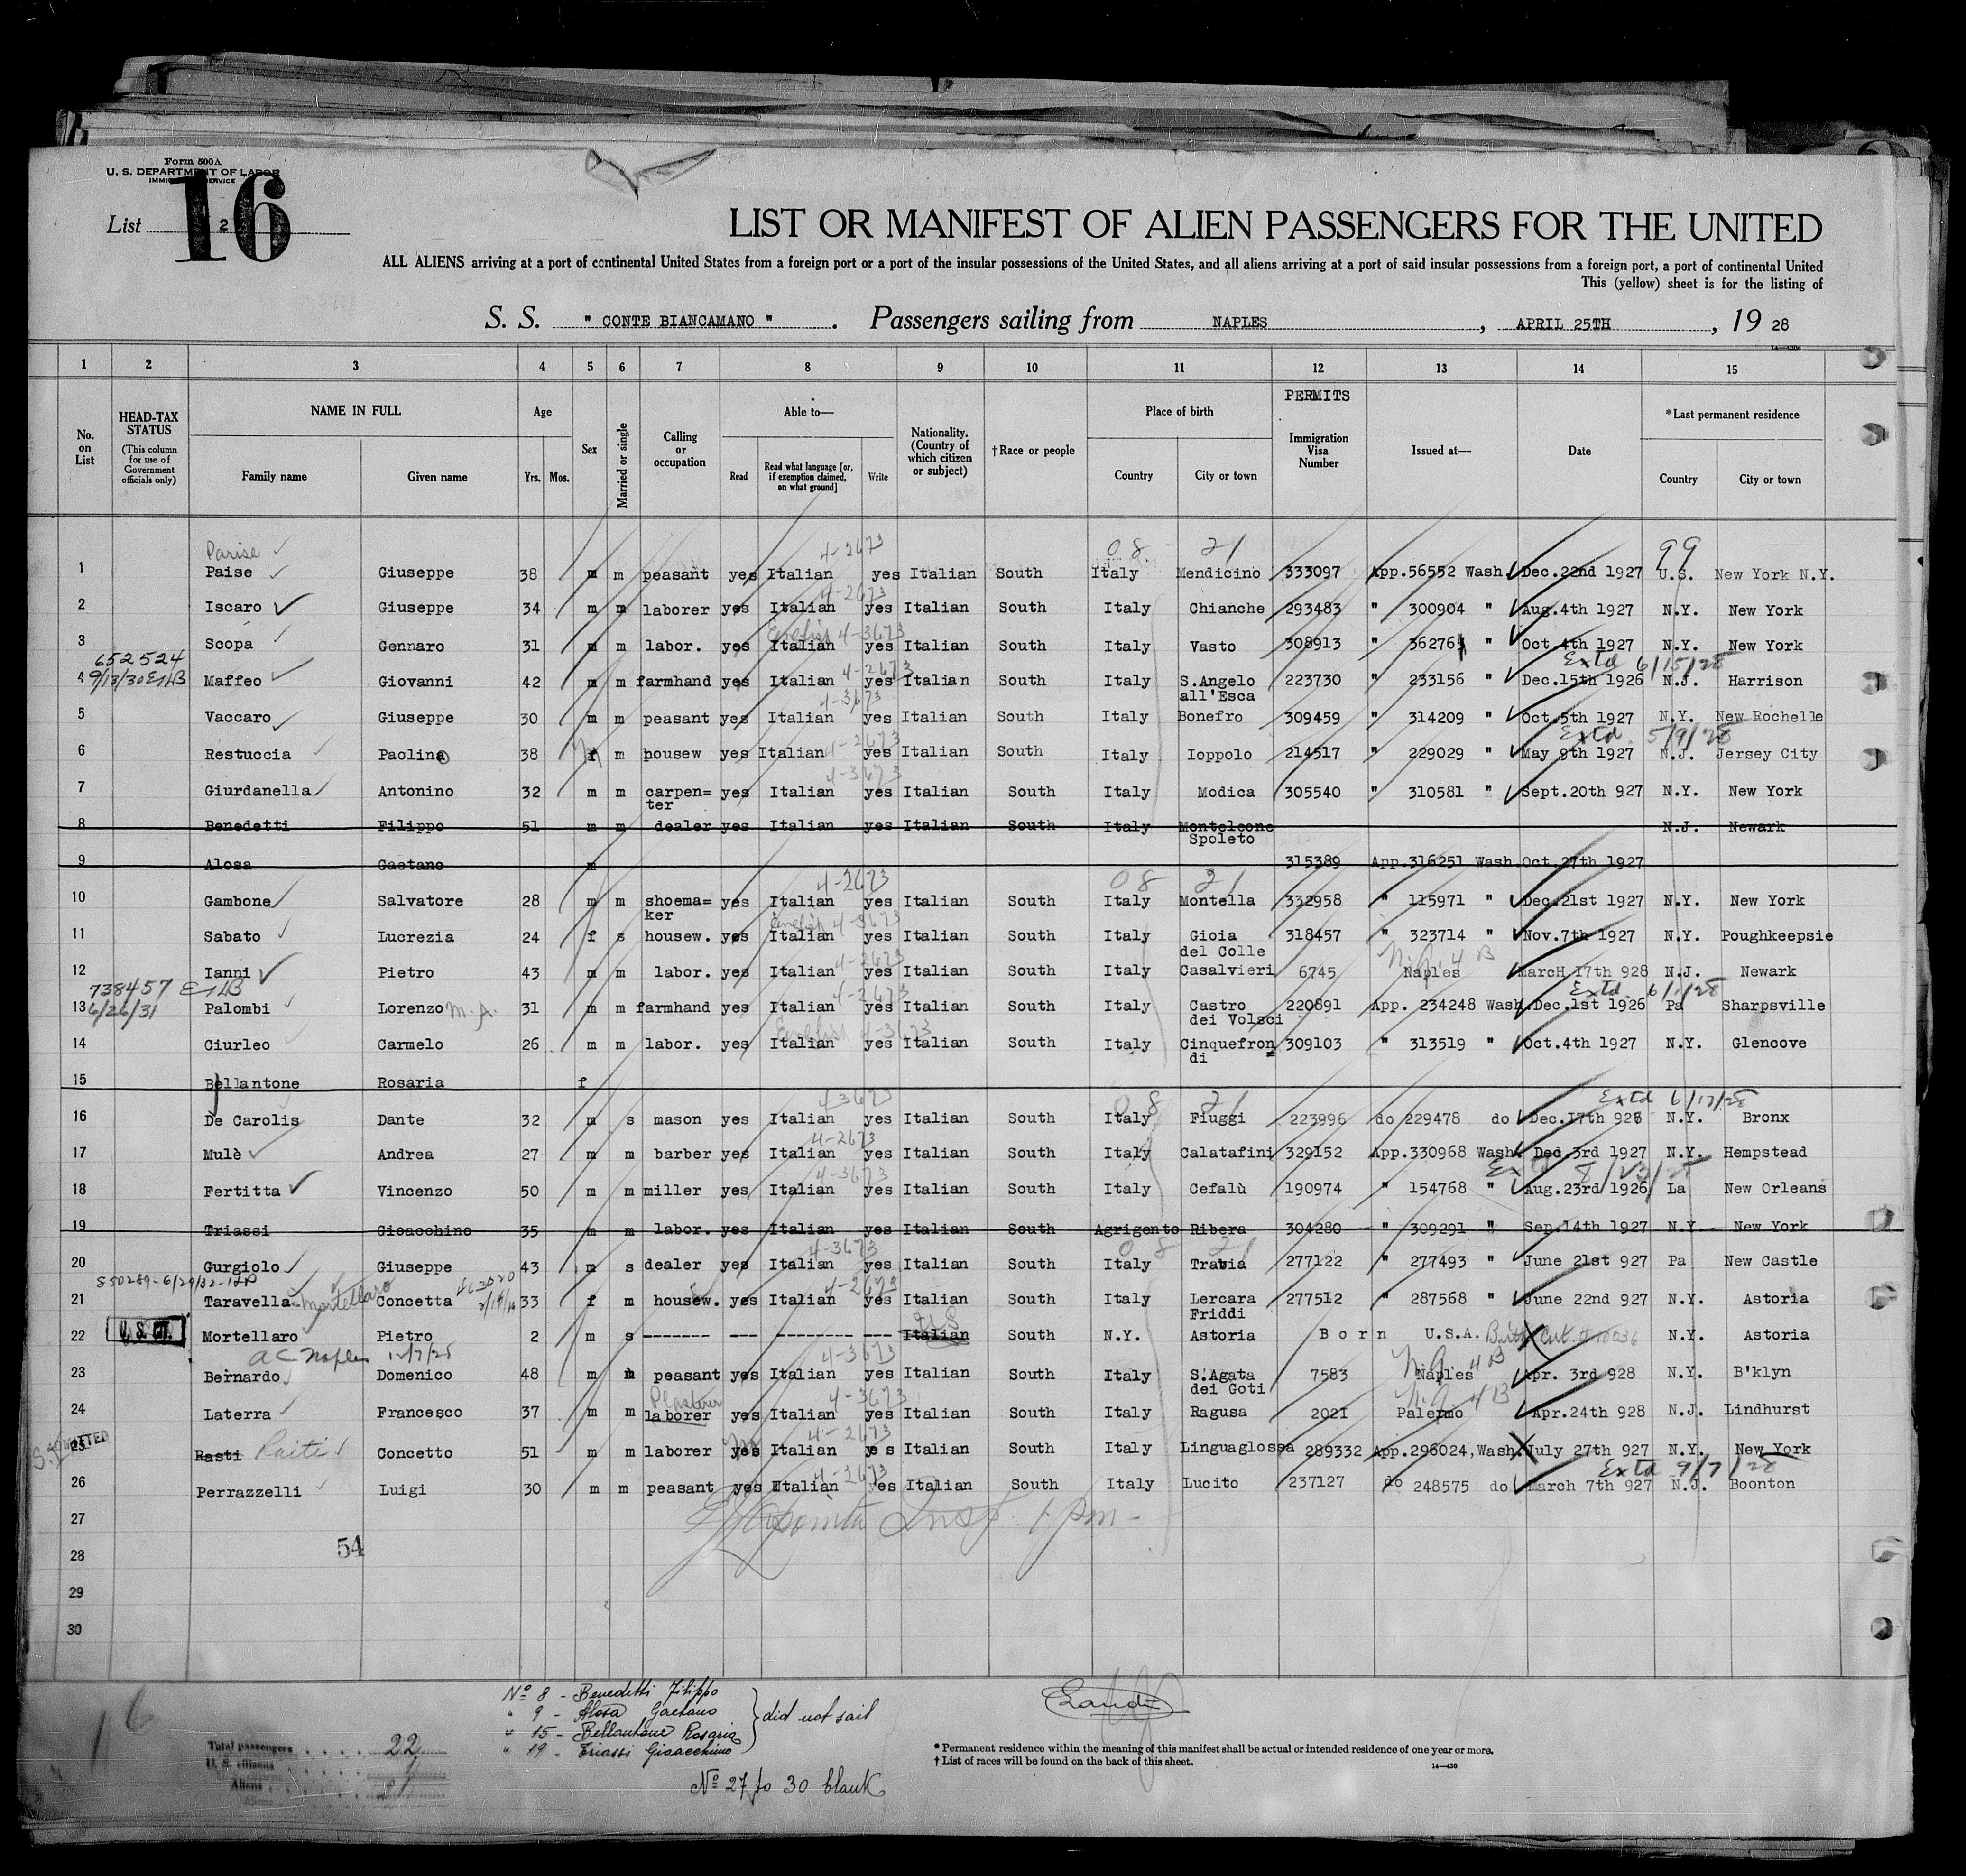 Form 500A
U. S. DEPARTMENT OF LABOR
16
List 2
LIST OR MANIFEST OF ALIEN PASSENGERS FOR THE UNITED
ALL ALIENS arriving at a port of continental United States from a foreign port or a port of the insular possessions of the United States, and all aliens arriving at a port of said insular possessions from a foreign port, a port of continental United
This (yellow) sheet is for the listing of
S. S. " CONTE BIANCAMANO " . Passengers sailing from NAPLES , APRIL 25TH , 19 28
1 2 3 4 5 6 7 8 9 10 11 12 13 14 15
No. on List
HEAD-TAX STATUS
(This column for use of Government officials only)
NAME IN FULL
Family name Given name
Age
Yrs. Mos.
Sex
Married or single
Calling or occupation
Able to—
Read
Read what language [or, if exemption claimed, on what ground]
Write
Nationality. (Country of which citizen or subject)
†Race or people
Place of birth
Country City or town
PERMITS
Immigration Visa Number
Issued at—
Date
*Last permanent residence
Country City or town
Parise 4-2673 08 21 99
1 Paise Giuseppe 38 m m peasant yes Italian yes Italian South Italy Mendicino 333097 App.56552 Wash. Dec.22nd 1927 U.S. New York N.Y.
4-2673
2 Iscaro Giuseppe 34 m m laborer yes Italian yes Italian South Italy Chianche 293483 " 300904 " Aug.4th 1927 N.Y. New York
English 4-3673
3 Scopa Gennaro 31 m m labor. yes Italian yes Italian South Italy Vasto 308913 " 36276 " Oct.4th 1927 N.Y. New York
652524 4-2673 Extd 6/15/28
4 9/13/30 Maffeo Giovanni 42 m m farmhand yes Italian yes Italian South Italy S.Angelo all'Esca 223730 " 233156 " Dec.15th 1926 N.J. Harrison
4-3673
5 Vaccaro Giuseppe 30 m m peasant yes Italian yes Italian South Italy Bonefro 309459 " 314209 " Oct.5th 1927 N.Y. New Rochelle
4-2673 Extd 5/9/28
6 Restuccia Paolino 38 f m housew yes Italian yes Italian South Italy Ioppolo 214517 " 229029 " May 9th 1927 N.J. Jersey City
4-3673
7 Giurdanella Antonino 32 m m carpen=ter yes Italian yes Italian South Italy Modica 305540 " 310581 " Sept.20th 927 N.Y. New York
8 Benedetti Filippo 51 m m dealer yes Italian yes Italian South Italy Monteleone Spoleto N.J. Newark
9 Alosa Gaetano m 315389 App.316251 Wash. Oct.27th 1927
4-2673 08 21
10 Gambone Salvatore 28 m m shoema=ker yes Italian yes Italian South Italy Montella 332958 " 115971 " Dec.21st 1927 N.Y. New York
English 4-3673
11 Sabato Lucrezia 24 f s housew. yes Italian yes Italian South Italy Gioia del Colle 318457 " 323714 " Nov.7th 1927 N.Y. Poughkeepsie
4-2673 N.Q. 4 B
12 Ianni Pietro 43 m m labor. yes Italian yes Italian South Italy Casalvieri 6745 Naples MarcH 17th 928 N.J. Newark
738457 4-2673 Extd 6/1/28
13 6/26/31 Palombi Lorenzo M.A. 31 m m farmhand yes Italian yes Italian South Italy Castro dei Volsci 220891 App. 234248 Wash. Dec.1st 1926 Pa Sharpsville
English 4-3673
14 Ciurleo Carmelo 26 m m labor. yes Italian yes Italian South Italy Cinquefron=di 309103 " 313519 " Oct.4th 1927 N.Y. Glencove
15 Bellantone Rosaria f
4-3673 08 21 Extd 6/17/28
16 De Carolis Dante 32 m s mason yes Italian yes Italian South Italy Fiuggi 223996 do 229478 do Dec.17th 926 N.Y. Bronx
4-2673
17 Mulè Andrea 27 m m barber yes Italian yes Italian South Italy Calatafini 329152 App.330968 Wash. Dec.3rd 1927 N.Y. Hempstead
4-3673 Extd 8/23/28
18 Fertitta Vincenzo 50 m m miller yes Italian yes Italian South Italy Cefalù 190974 " 154768 " Aug.23rd 1926 La New Orleans
19 Triassi Gioacchino 35 m m labor. yes Italian yes Italian South Agrigento Ribera 304280 " 309291 " Sep.14th 1927 N.Y. New York
4-3673 08 21
20 Gurgiolo Giuseppe 43 m s dealer yes Italian yes Italian South Italy Trabia 277122 " 277493 " June 21st 927 Pa New Castle
850289-6/29/32 4-2673
21 Taravella Mortellaro Concetta 33 f m housew. yes Italian yes Italian South Italy Lercara Friddi 277512 " 287568 " June 22nd 927 N.Y. Astoria
U.S. U.S. CIT.
22 Mortellaro Pietro 2 m s ------- --- -------- --- Italian South N.Y. Astoria Born U.S.A. N.Y. Astoria
ac Naples 12/7/28 4-3673 N.Q. 4 B
23 Bernardo Domenico 48 m m peasant yes Italian yes Italian South Italy S.Agata dei Goti 7583 Naples Apr. 3rd 928 N.Y. B'klyn
Plasterer 4-3673 N.Q. 4 B
24 Laterra Francesco 37 m m laborer yes Italian yes Italian South Italy Ragusa 2021 Palermo Apr.24th 928 N.J. Lindhurst
ADMITTED 4-2673
25 Rasti Raiti Concetto 51 m m laborer yes Italian yes Italian South Italy Linguaglossa 289332 App.296024,Wash. July 27th 927 N.Y. New York
4-2673 Extd 9/7/28
26 Perrazzelli Luigi 30 m m peasant yes Italian yes Italian South Italy Lucito 237127 do 248575 do March 7th 927 N.J. Boonton
27
54
28
29
30
16
No 8 - Benedetti Filippo
" 9 - Alosa Gaetano
" 15 - Bellantone Rosaria
" 19 - Triassi Gioacchino
did not sail
No 27 to 30 blank
Total passengers 22
U. S. citizens 1
Aliens 21
* Permanent residence within the meaning of this manifest shall be actual or intended residence of one year or more.
† List of races will be found on the back of this sheet.
14—430